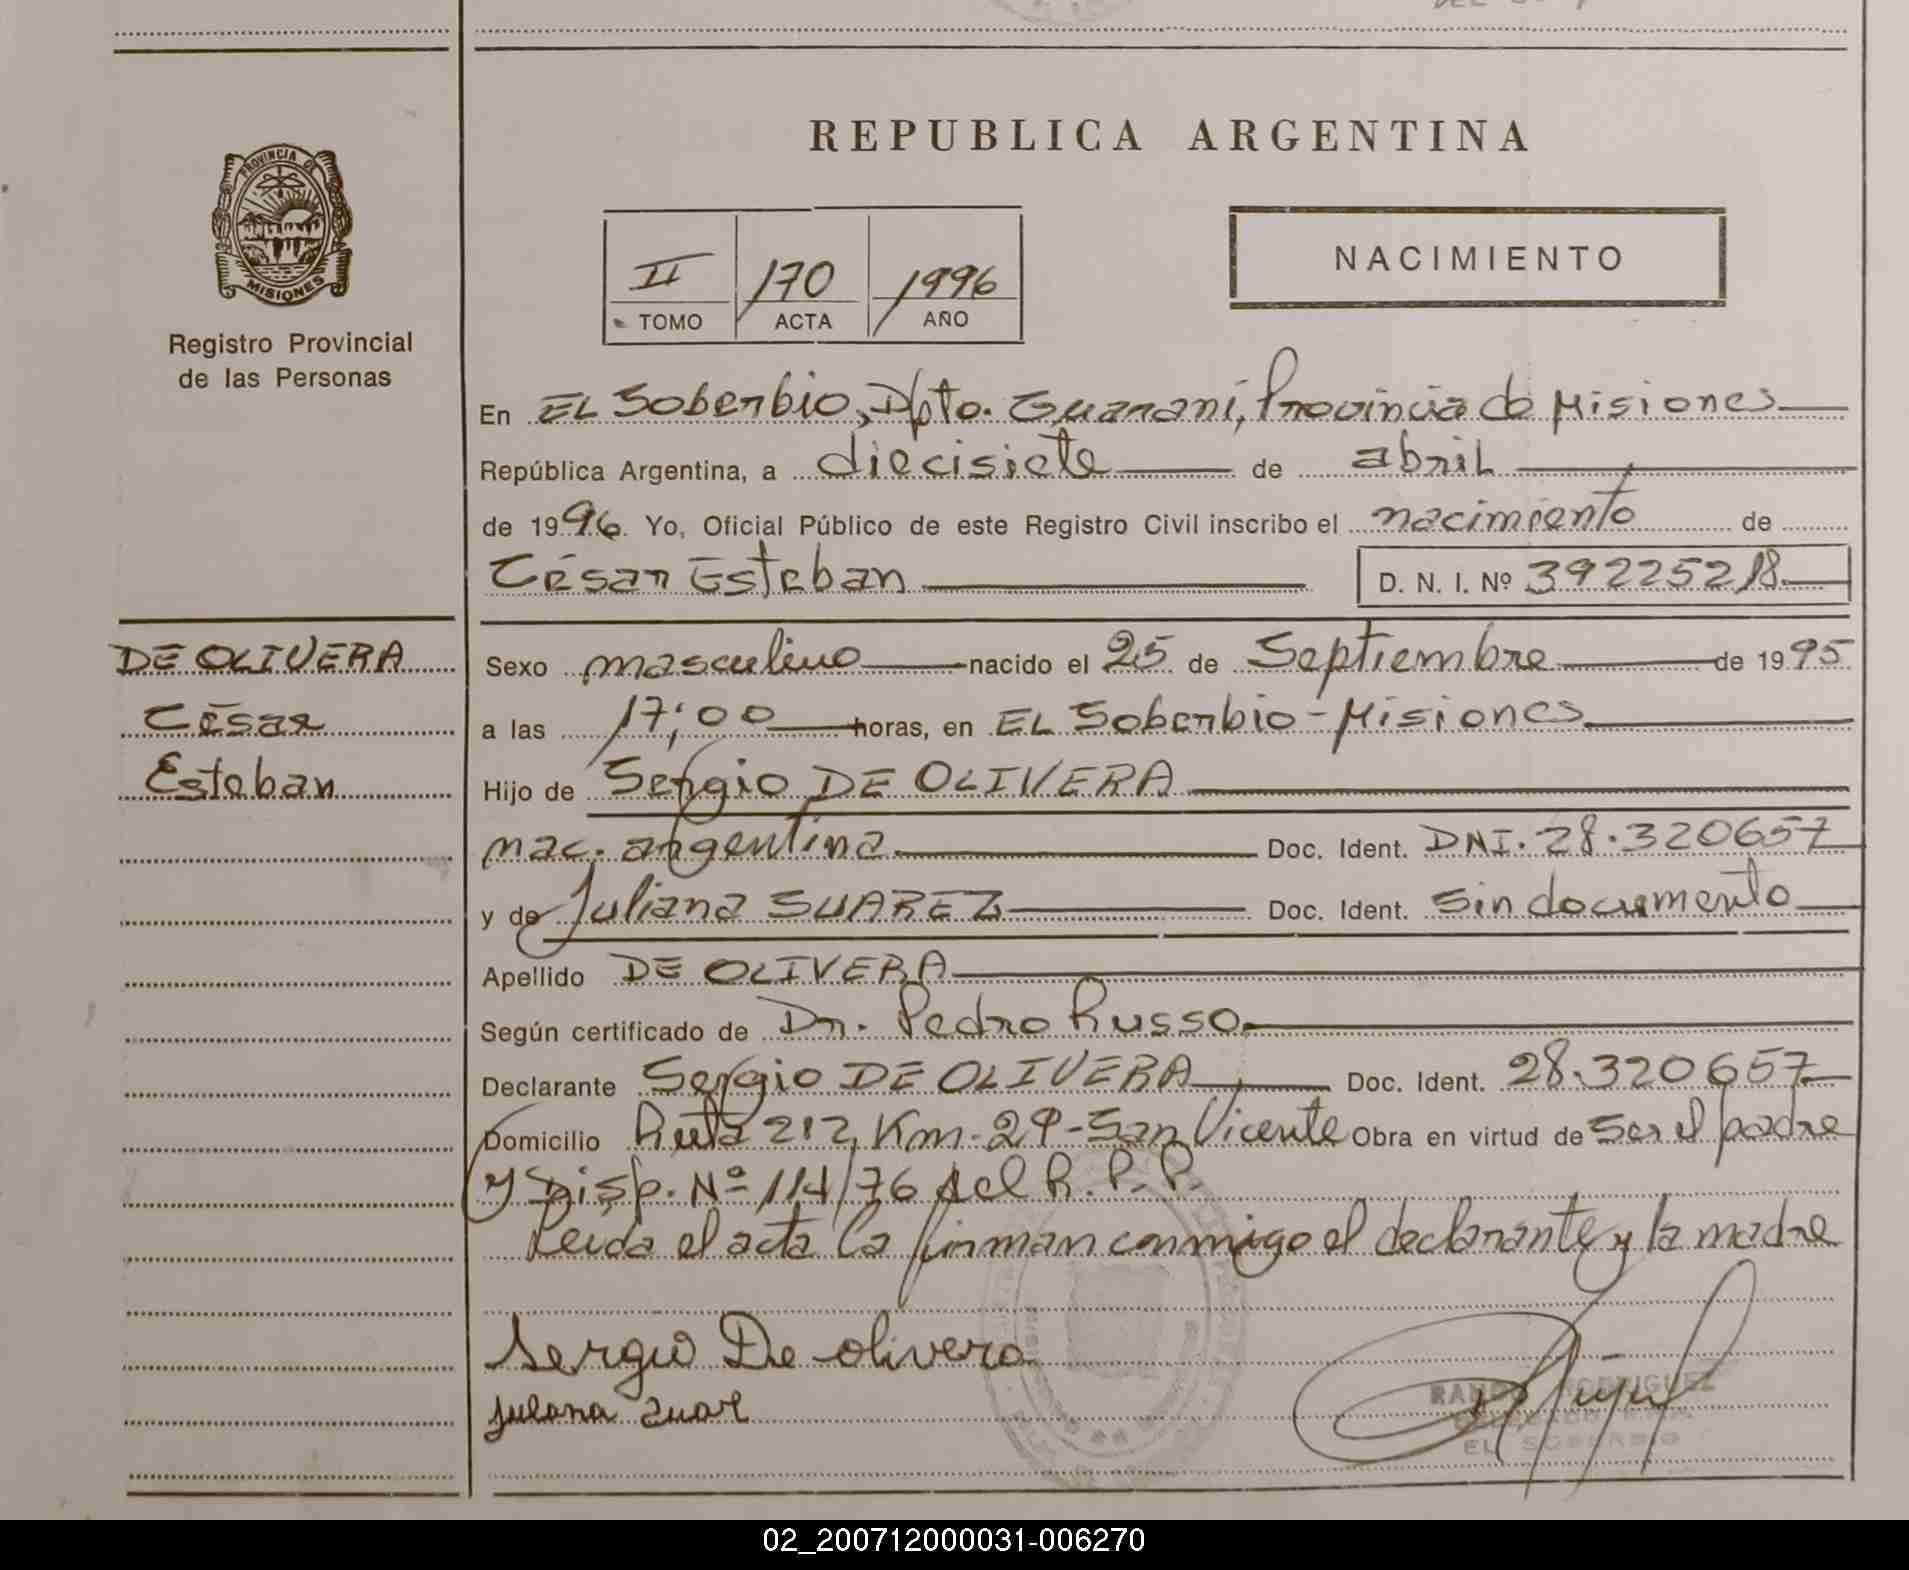 REPUBLICA ARGENTINA
PROVINCIA DE
MISIONES
Registro Provincial
de las Personas
II 170 1996
TOMO ACTA AÑO
NACIMIENTO
En EL Soberbio, Dpto. Guaraní, Provincia de Misiones
República Argentina, a diecisiete de abril
de 1996. Yo, Oficial Público de este Registro Civil inscribo el nacimiento de
César Esteban D. N. I. Nº 39225218
DE OLIVERA
César
Esteban
Sexo masculino nacido el 25 de Septiembre de 1995
a las 17;00 horas, en EL Soberbio - Misiones
Hijo de Sergio DE OLIVERA
nac. argentina Doc. Ident. DNI. 28.320657
y de Juliana SUAREZ Doc. Ident. sin documento
Apellido DE OLIVERA
Según certificado de Dr. Pedro Russo.
Declarante Sergio DE OLIVERA Doc. Ident. 28.320657
Domicilio Ruta 212, Km. 29 - San Vicente Obra en virtud de ser el padre
y Disp. Nº 114/76 del R. P. P.
Leída el acta la firman conmigo el declarante y la madre
Sergio De olivera
Juliana Zuar
RODRIGUEZ
EL SOBERBIO
02_200712000031-006270